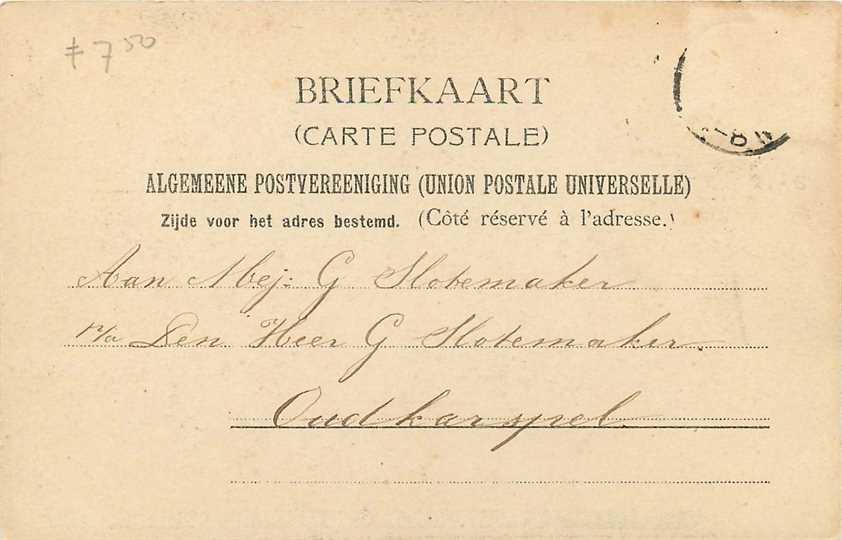 7 50
BRIEFKAART
(CARTE POSTALE)
ALGEMEENE POSTVEREENIGING (UNION POSTALE UNIVERSELLE)
Zijde voor het adres bestemd. (Côté réservé à l'adresse.)
Aan Mej: G Slotemaker
p/a Den Heer G Slotemaker.
Oudkarspel.